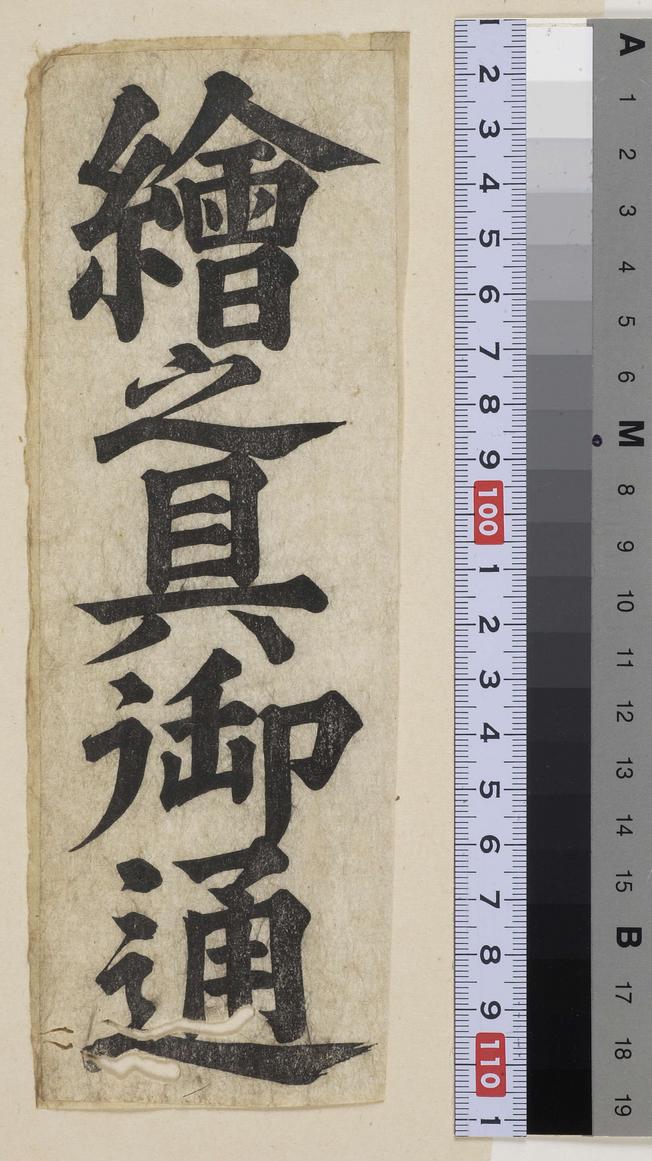 繪之具御通
1
2
3
4
5
6
7
8
9
100
1
2
3
4
5
6
7
8
9
110
1
A
1
2
3
4
5
6
M
8
9
10
11
12
13
14
15
B
17
18
19